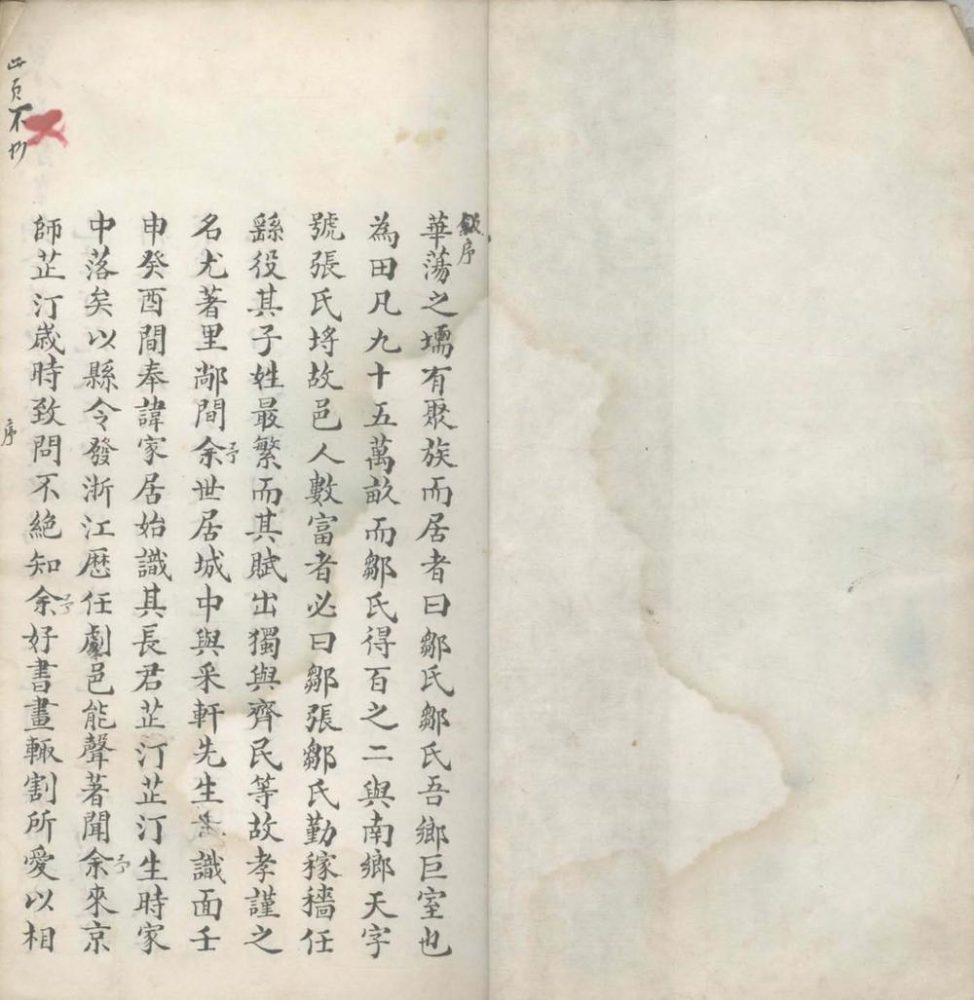 敍序
華蕩之壖有聚族而居者曰鄒氏鄒氏吾鄉巨室也
為田凡九十五萬畝而鄒氏得百之二與南鄉天字
號張氏埓故邑人數富者必曰鄒張鄒氏勤稼穡任
繇役其子姓最繁而其賦出獨與齊民等故孝謹之
名尤著里鄰間余予世居城中與采軒先生識面壬
申癸酉間奉諱家居始識其長君芷汀芷汀生時家
中落矣以縣令發浙江歷任劇邑能聲著聞余予來京
師芷汀歲時致問不絕知余予好書畫輒割所愛以相
序
此頁不抄